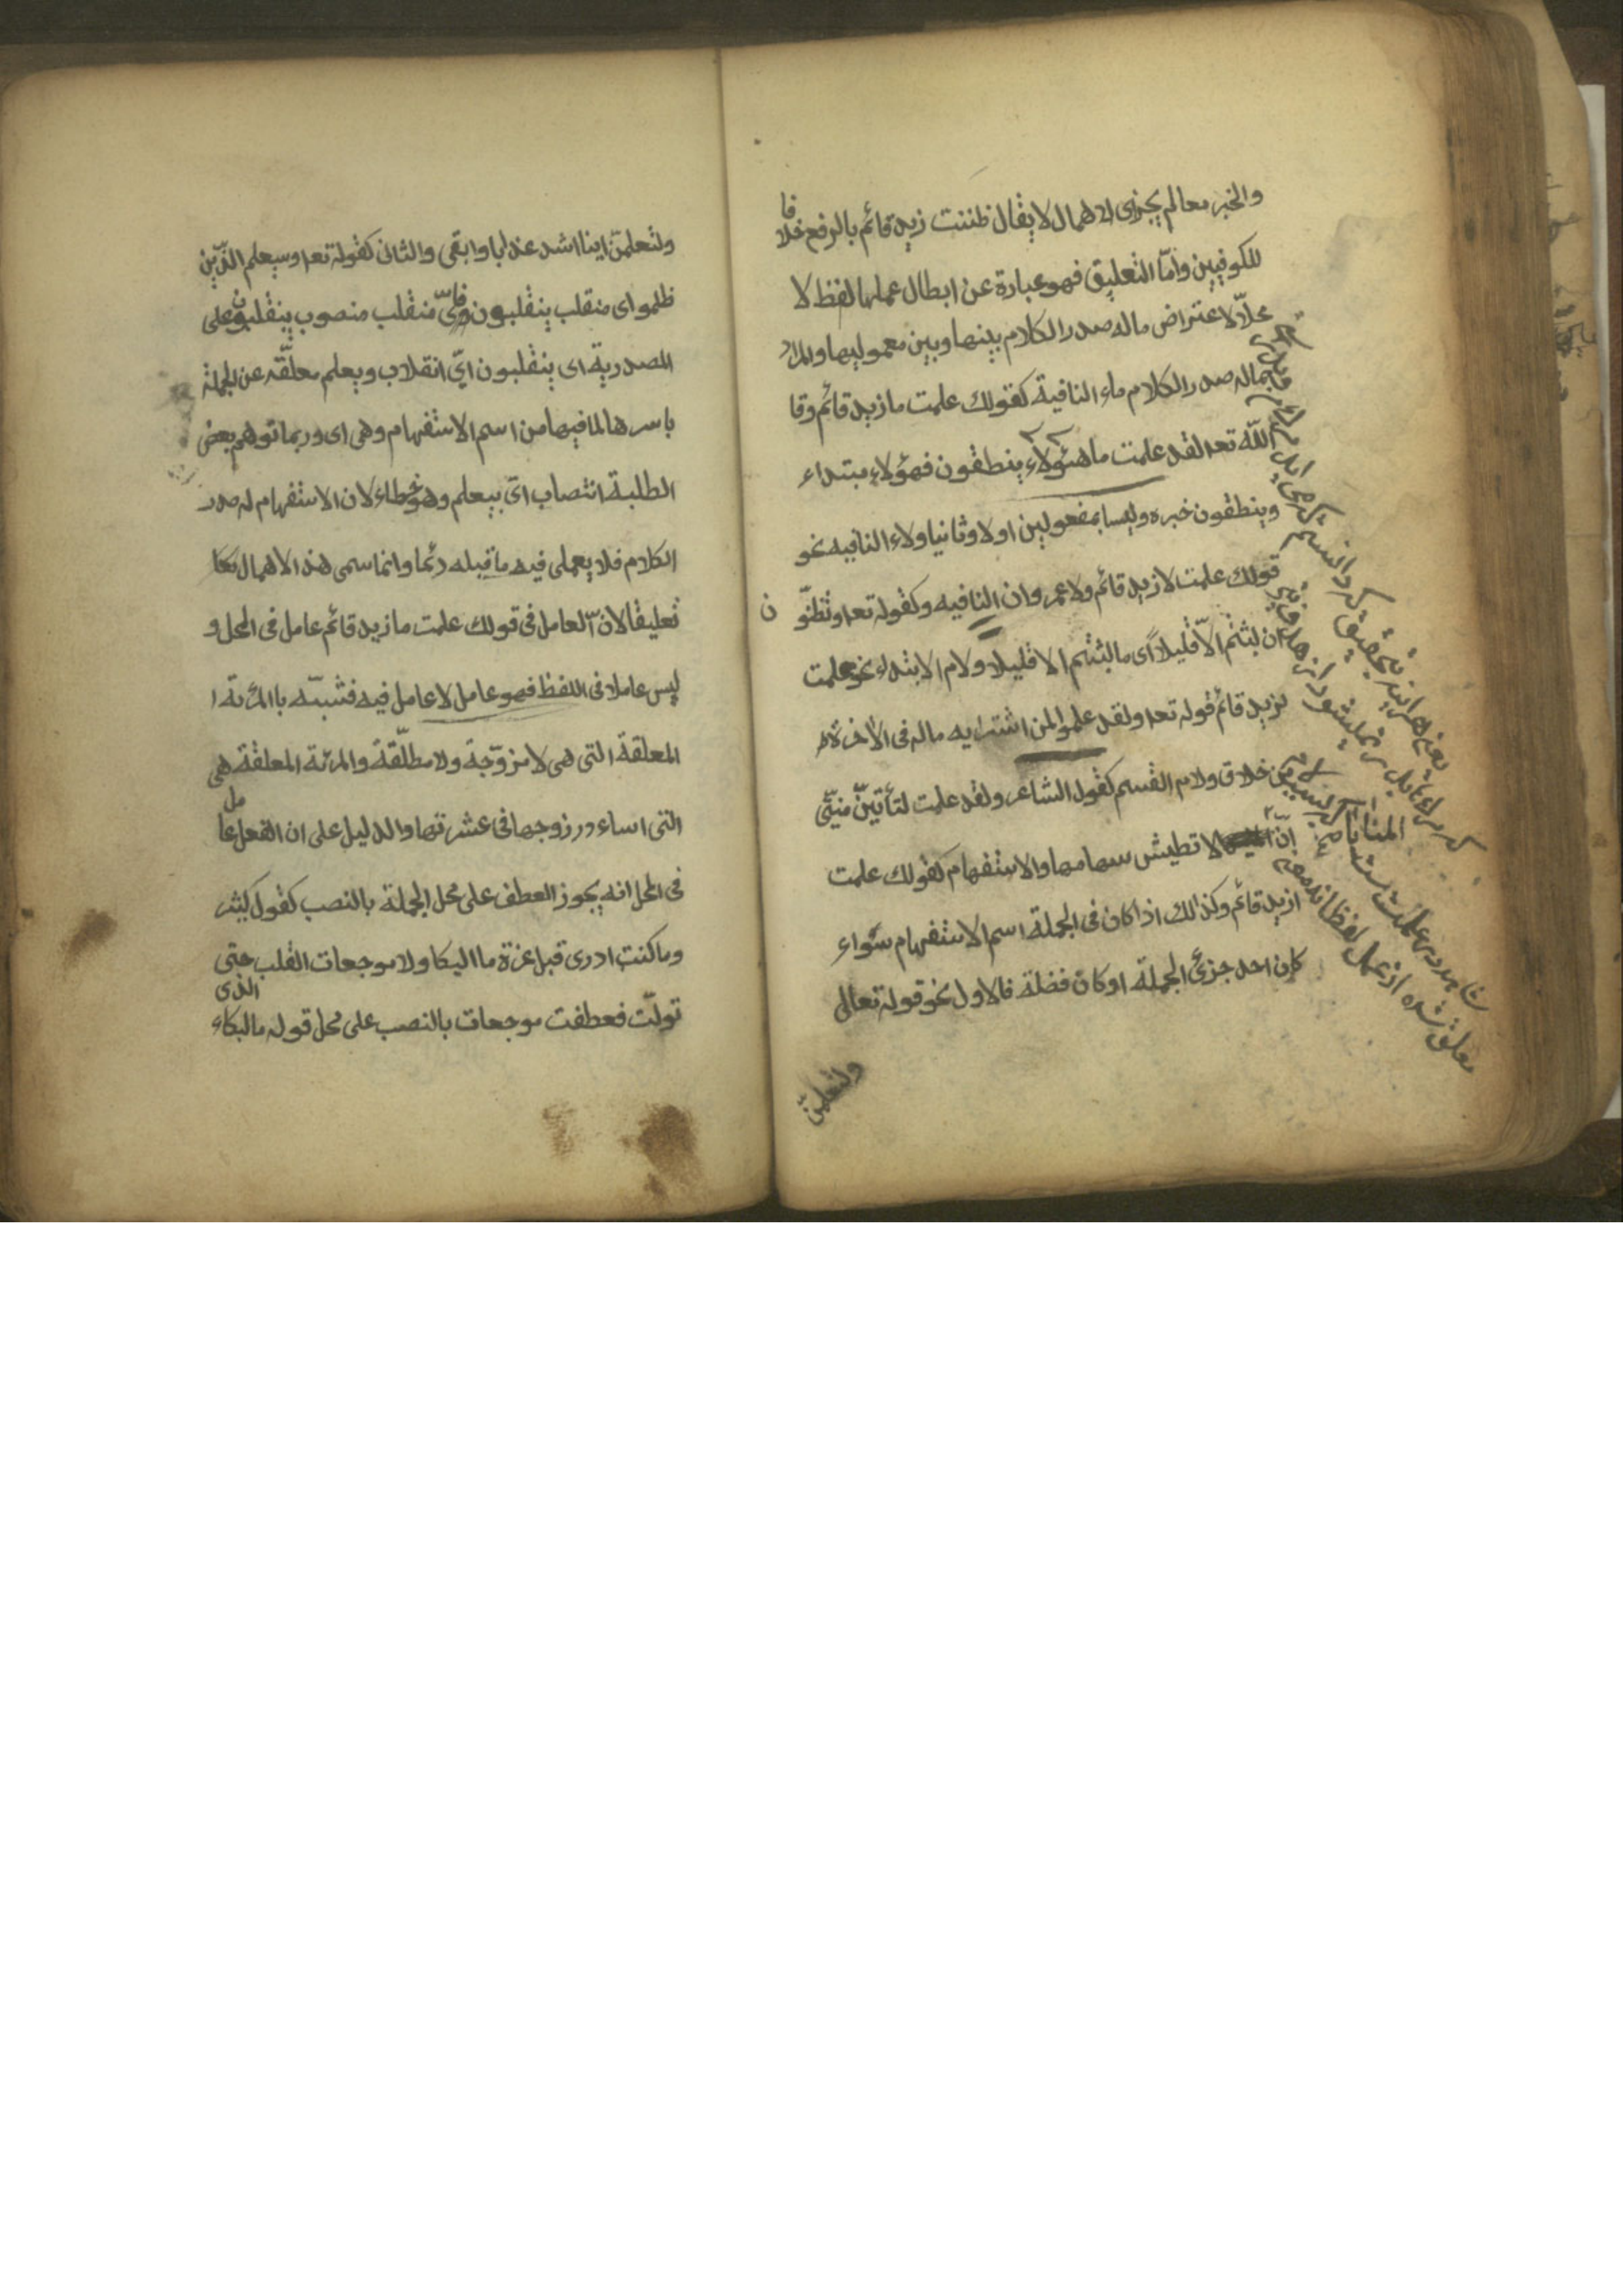 والخبر معا لم يجز اى الاهمال لا يقال ظننت زيد قائم بالرفع خلافا
للكوفيين وأمّا التعليق فهو عبارة عن ابطال عملها لفظ لا
محلاّ لاعتراض ماله صدر الكلام بينها وبين معموليها والمراد
بماله صدر الكلام ماء النافية كقولك علمت ما زيد قائم وقا
اللّه تعه لقد علمت ما هئولاء ينطقون فهؤلاء مبتداء
وينطقون خبره وليسا بمفعولين اولا وثانيا ولاء النافيه نحو
قولك علمت لا زيد قائم ولا عمر وان النافيه وكقوله تعه وتظنّون
ان لبثتم الاّ قليلاً اى ما لبثتم الا قليلا ولام الابتداء نحو علمت
لزيد قائم قوله تعه ولقد علموا لمن اشتريه ماله فى الاخرة
من خلاق ولام القسم كقول الشاعر ولقد علمت لتأتينّ منيّتى
انّ المنايا لا تطيش سهامها والاستفهام كقولك علمت
ازيد قائم وكذلك اذا كان فى الجملة اسم الاستفهام سئواء
كان احد جزئ الجملة او كان فضلة فالاول نحو قوله تعالى
ولتعلمنّ
ولتعلمنّ اينا اشد عذابا وابقى والثانى كقوله تعه وسيعلم الذّين
ظلموا اى منقلب ينقلبون فاىّ منقلب منصوب بينقلبون على
المصدرية اى ينقلبون اىّ انقلاب ويعلم معلّقه عن الجملة
باسرها لما فيها من اسم الاستفهام وهى اى وربما توهم بعض
الطلبة انتصاب اىّ بيعلم وهو خطاء لان الاستفهام له صدر
الكلام فلا يعملى فيه ما قبله دئما وانما سمى هذ الاهمال
تعليقا لانّ العامل فى قولك علمت ما زيد قائم عامل فى المحل و
ليس عاملا فى اللفظ فهو عامل لا عامل فيه فشبّه باالمرئة ا
المعلقة التى هى لا مزوّجة ولا مطلّقة والمرئة المعلقة هى
التى اساء زوجها فى عشرتها والدليل على ان الفعل عامل
فى المحل انه يجوز العطف على محل الجملة بالنصب كقول كثير
وما كنت ادرى قبل عزة ما البكا ولا موجعات القلب حتى
تولّت فعطفت موجعات بالنصب على محل قوله ما البكاء الذى